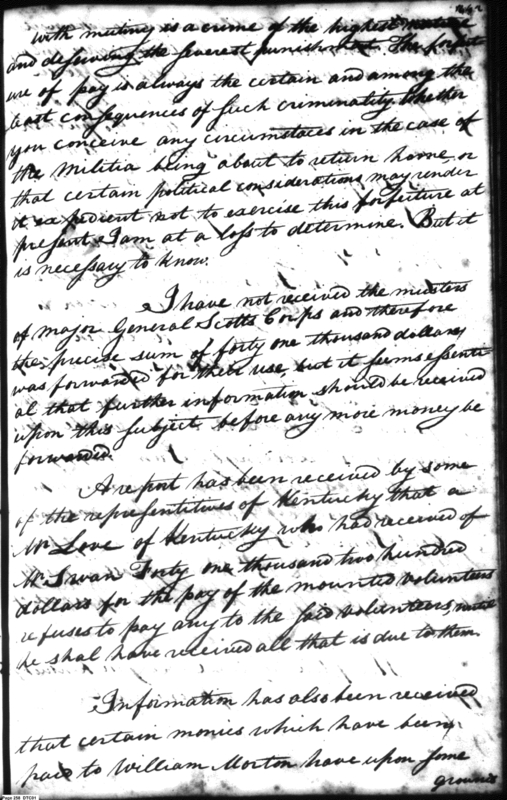 with mutiny is a crime of the highest nature
and deserving the severest punishment. The forfeit
ure of pay is always the certain and among the
least consequences of such criminality. Whether
you conceive any circumstaces in the case of
the Militia being about to return home, or
that certain political considerations may render
it expedient not to exercise this forfeiture at
present I am at a loss to determine. But it
is necessary to know.
I have not received the musters
of major General Scotts Corps and therefore
the precise sum of forty one thousand dollars
was forwarded for their use, but it seems essenti
al that further information should be received
upon this subject before any more money be
forwarded.
A report has been received by some
of the representitives of Kentucky that a
Mr Love of Kentucky who had received of
Mr Swan Forty one thousand two hundred
dollars for the pay of the mounted volunteers
refuses to pay any to the said volunteers, until
he shal have received all that is due to them.
Information has also been received
that certain monies which have been
paid to William Morton have upon some
grounds
Page 256 DTC01